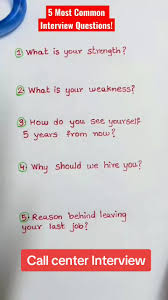 5 Most Common
Interview Questions!
1) What is your strength?
2. What is your weakness?
3) How do you see yourself
5 years from now?
4. Why should we hire you?
5. Reason behind leaving
your last job?
Call center Interview